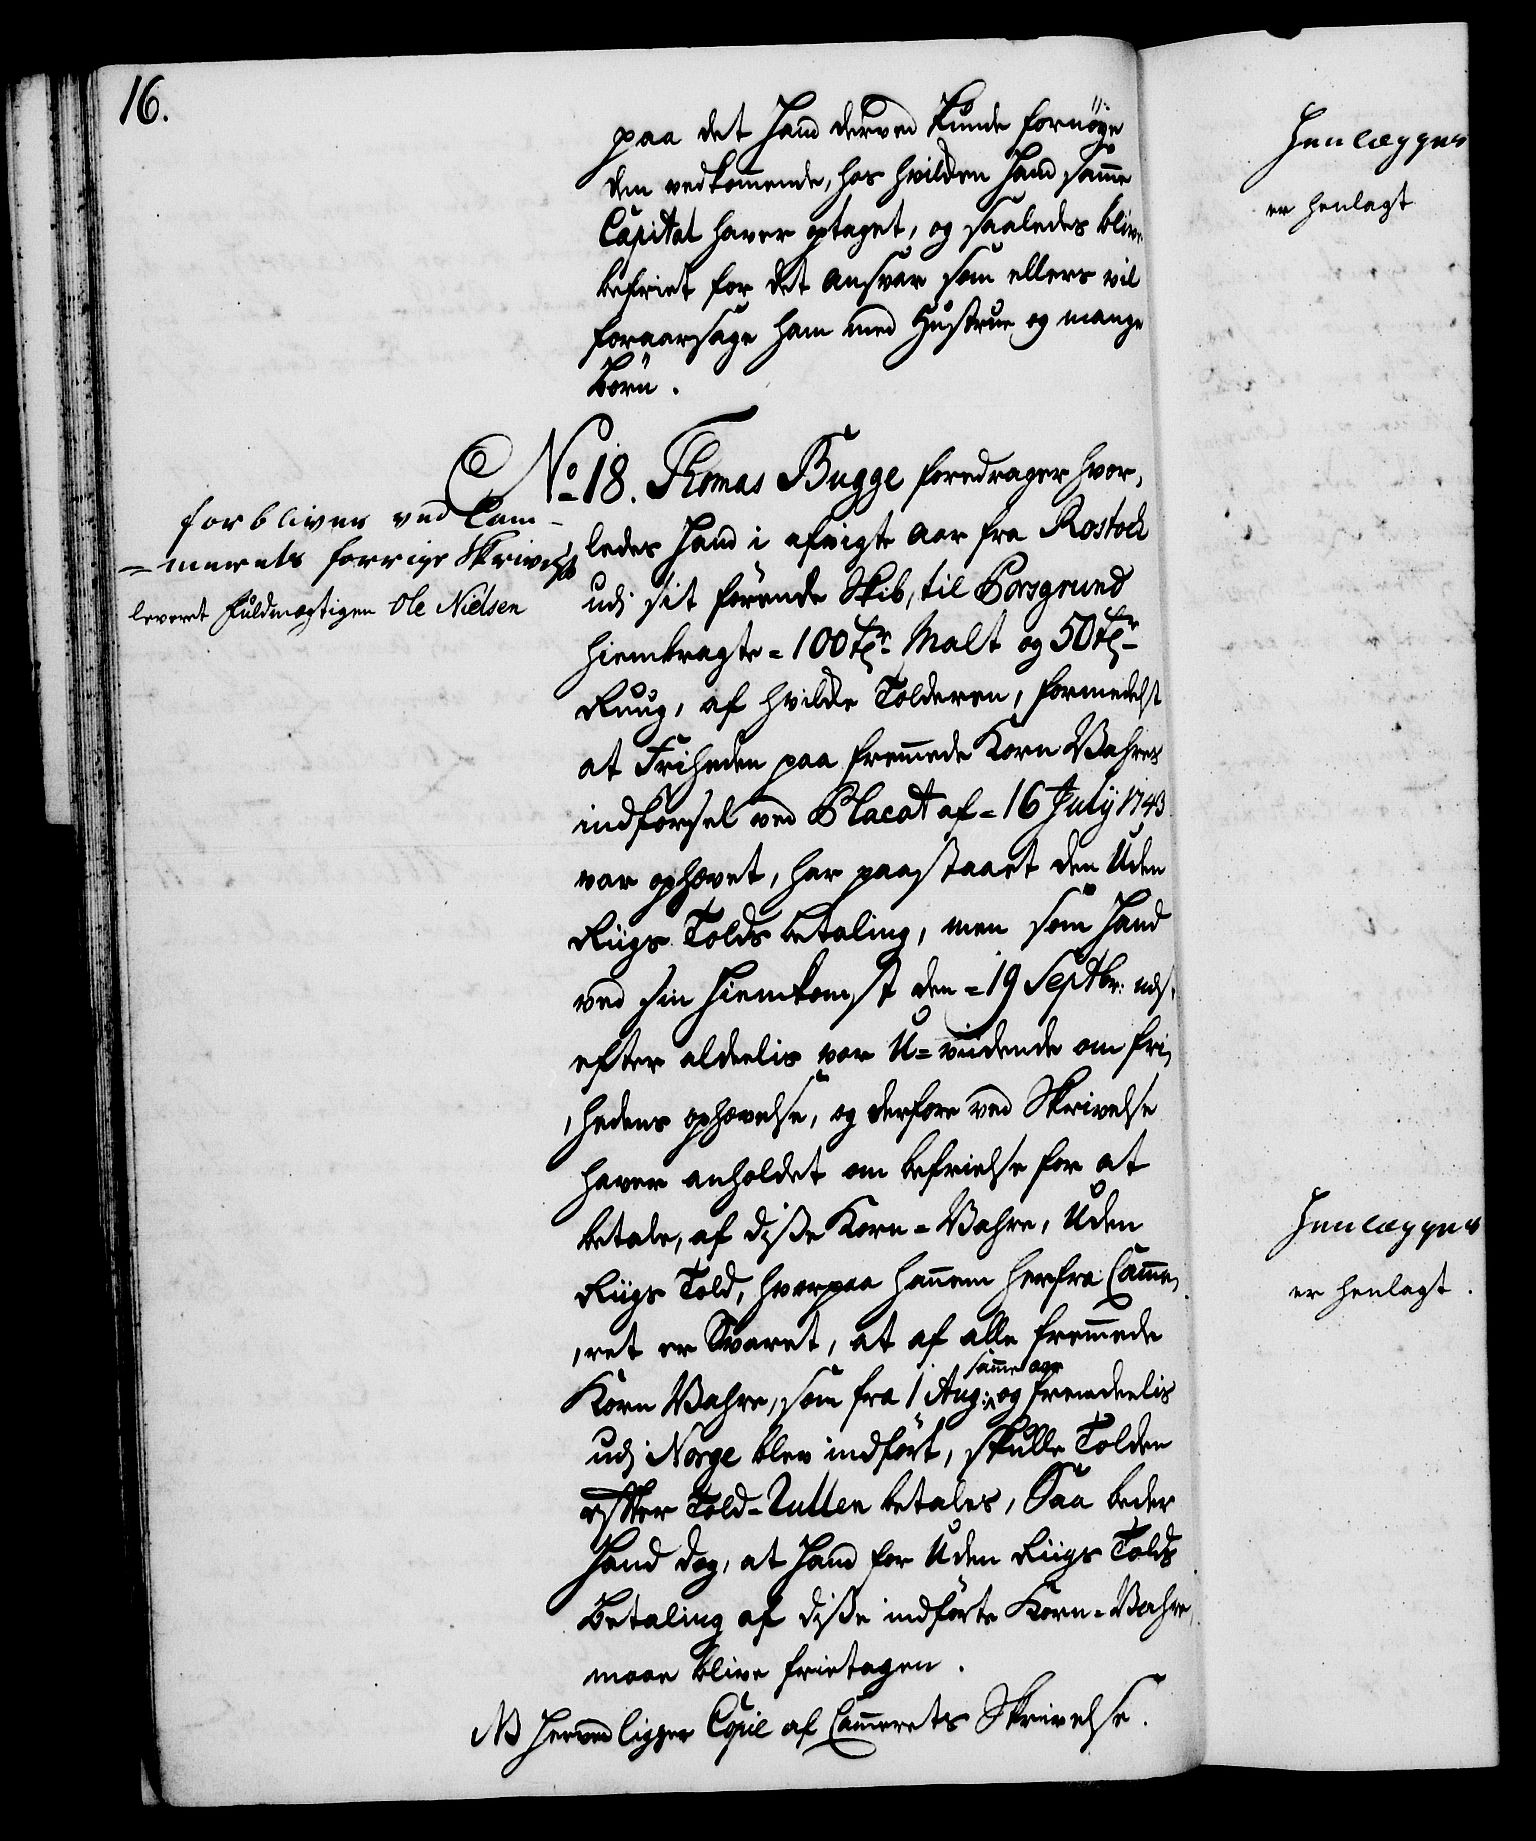 16.
paa det Hand derved kunde fornöye
den vedkommende, hos hvilken Hand samme
Capital haver optaget, og saaledes blive
befriet for det Ansvar som ellers vil
foraarsage ham med Hustrue og mange
Börn.
Henlægges
er henlagt
No 18. Thomas Bugge foredrager hvor,
ledes Hand i afvigte Aar fra Rostock
udj sit förende Skib, til Porsgrund
hiembragte = 100 Tr Malt og 50 Tr
Ruug, af hvilke Tolderen, formedelst
at Friheden paa fremmede Korn Vahres
indförsel ved Placat af = 16 July 1743
var ophævet, har paastaaet den Uden
Riigs Tolds betaling, men som Hand
ved sin Hiemkomst den = 19 Septbr: nest
efter aldeelis var U=vidende om Fri,
,hedens ophævelse, og derfore ved Skrivelse
haver anholdet om befrielse for at
betale, af disse Korn = Vahre, Uden
Riigs Told, hvorpaa hannem herfra Camme,
,ret er Svaret, at af alle fremmede
Korn Vahre, som fra 1 Aug: samme aar og fremdeelis
udj Norge blev indfört, skulle Tolden
efter Told=Rullen betales, Saa beder
Hand dog, at Hand for Uden Riigs Tolds
Betaling af disse indförte Korn=Vahre,
maae blive frietagen.
NB Herved ligger Copie af Cammerets Skrivelse.
forbliver ved Cam-
=merets forrige Skrivelse
leveret Fuldmægtigen Ole Nielsen
Henlægges
er henlagt.